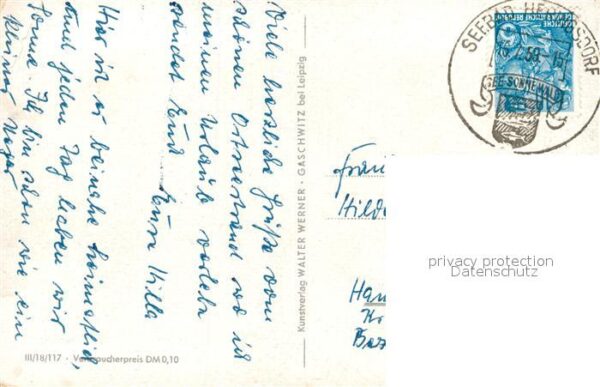 Viele herzliche Grüße vom
schönen Ostseestrand wo ich
meinen Urlaub verlebe
sendet Euch
Eure Hilla
Hier ist es beinahe heimatlich,
und jeden Tag lieben wir
Sonne. Ich bin schon wie ein
kleiner Neger
III/18/117 · Verbraucherpreis DM 0,10
Kunstverlag WALTER WERNER · GASCHWITZ bei Leipzig
SEEBAD HERINGSDORF
59
SEE SONNE WALD
DEUTSCHE
DEMOKRATISCHE REPUBLIK
Frau
Hilde
privacy protection
Datenschutz
Han